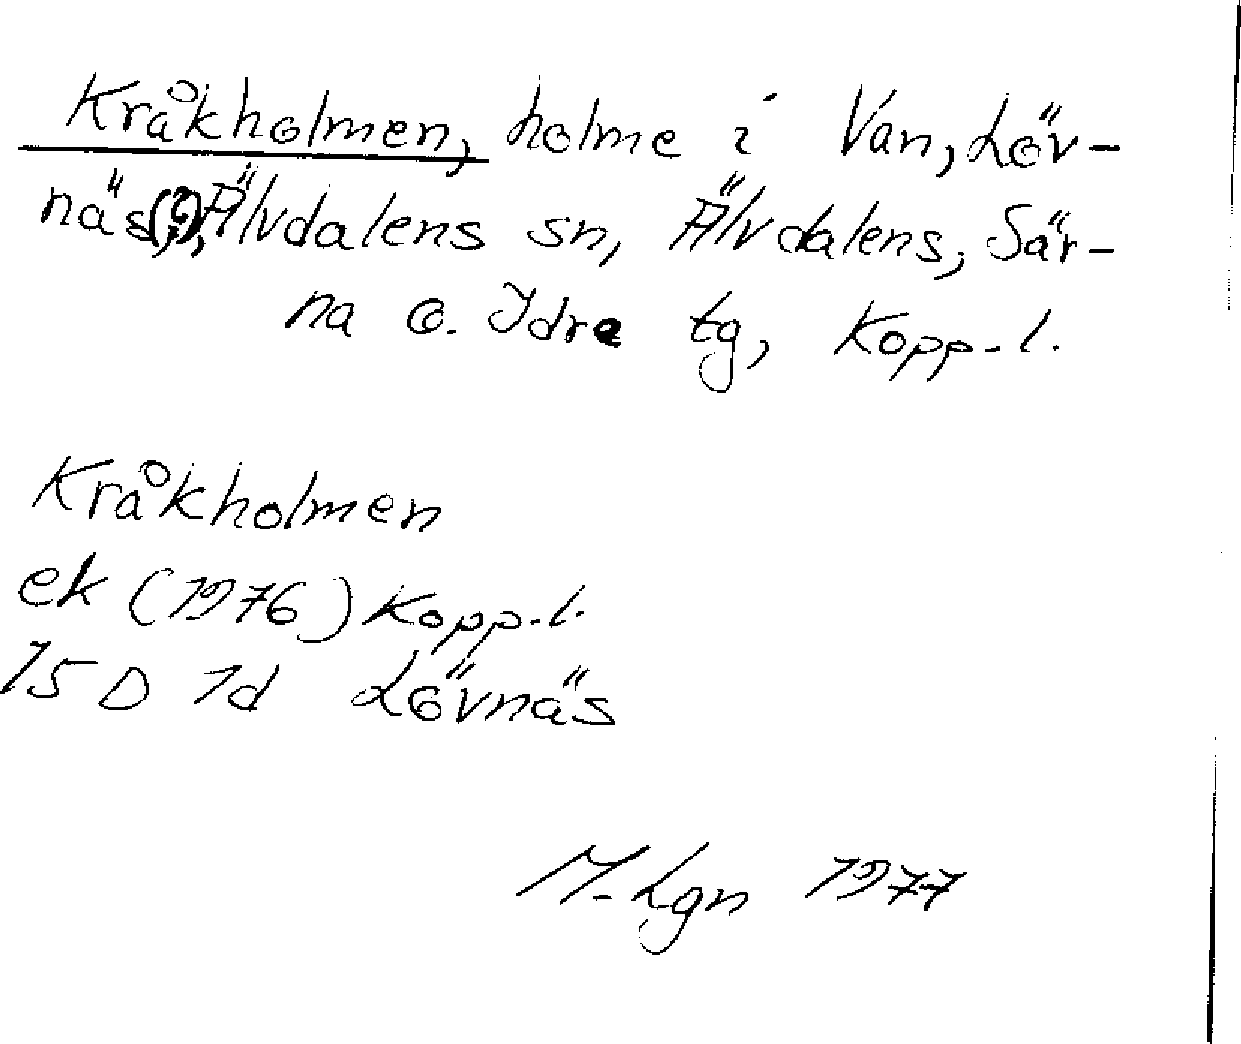 Kråkholmen, holme i Van, Löv-
näs(?), Älvdalens sn, Älvdalens, Sär-
na o. Idre tg, Kopp.l.
Kråkholmen
ek (1976) Kopp.l.
15 D 1d Lövnäs
M. Lgn 1977